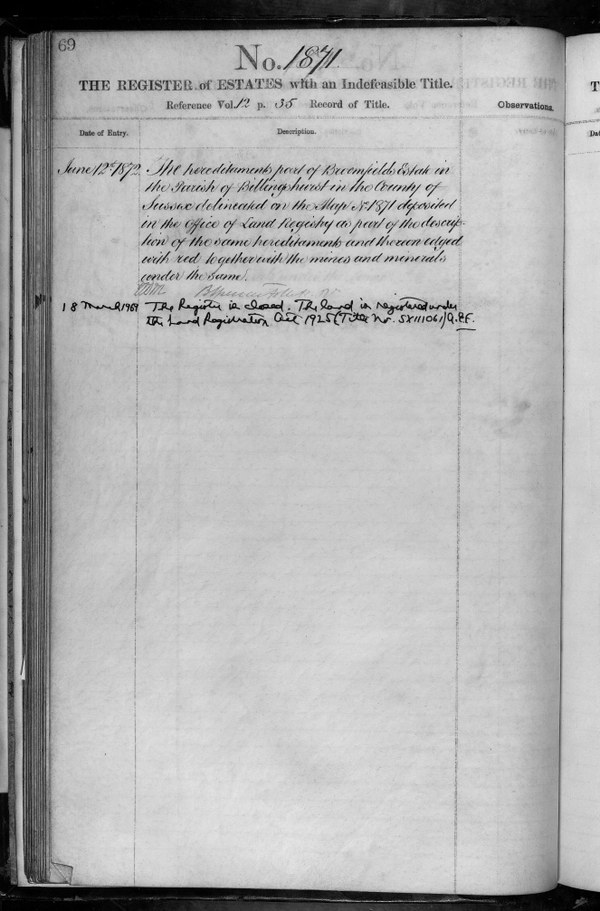 69
No. 1871
THE REGISTER of ESTATES with an Indefeasible Title.
Reference Vol. 12 p. 35 Record of Title.
Observations.
Date of Entry.
Description.
June 12th 1872. The hereditaments part of Broomfields Estate in
the Parish of Billingshurst in the County of
Sussex delineated on the Map No 1871 deposited
in the Office of Land Registry as part of the descrip-
tion of the same hereditaments and thereon edged
with red together with the mines and minerals
under the same.
18 March 1969 The Register is closed. The land is registered under
the Land Registration Act 1925 (Title No. SX111061)